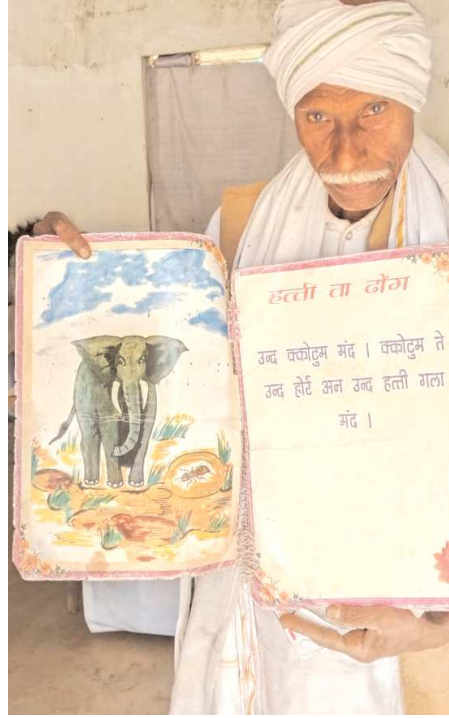 हत्ती ता ढोंग
उन्द क्कोटुम मंद । क्कोटुम ते
उन्द होर्र अन उन्द हत्ती गला
मंद ।